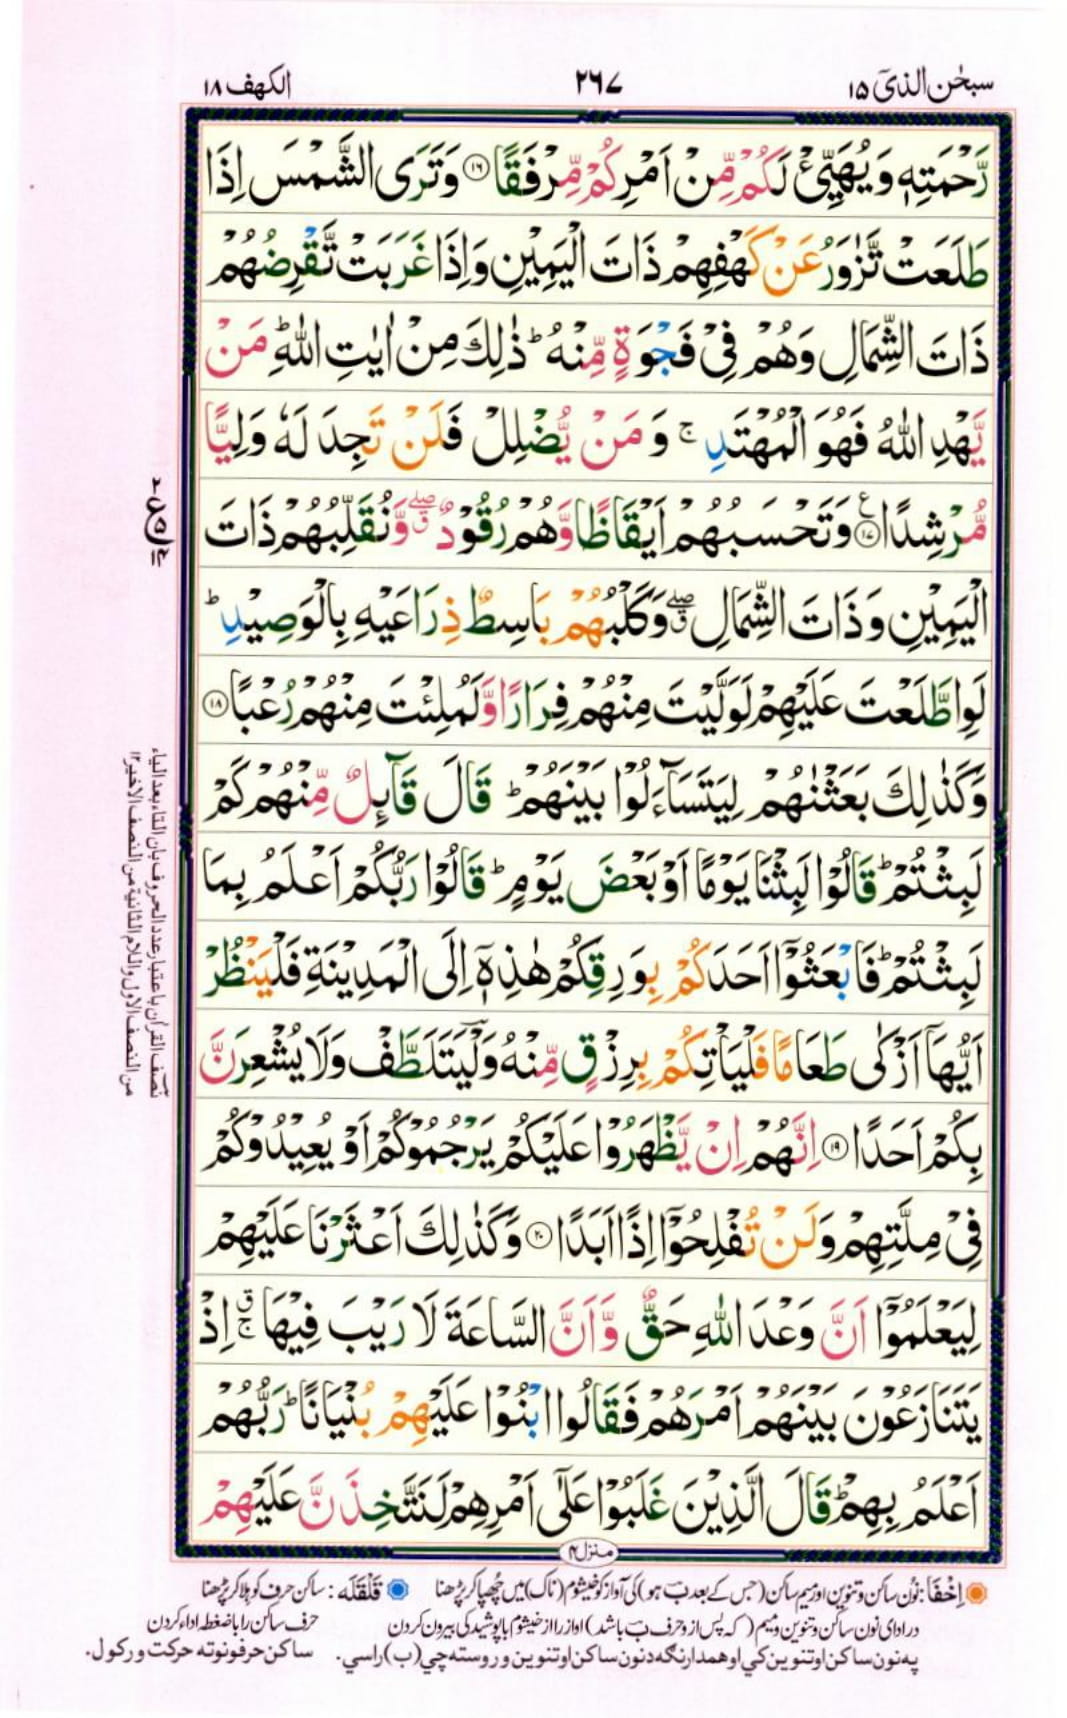 سبحٰن الذیٓ ١٥
٢٦٧
الكهف ١٨
رَّحْمَتِهٖ وَيُهَيِّئْ لَكُمْ مِّنْ اَمْرِكُمْ مِّرْفَقًا ۝١٦ وَتَرَى الشَّمْسَ اِذَا
طَلَعَتْ تَّزٰوَرُ عَنْ كَهْفِهِمْ ذَاتَ الْيَمِيْنِ وَاِذَا غَرَبَتْ تَّقْرِضُهُمْ
ذَاتَ الشِّمَالِ وَهُمْ فِيْ فَجْوَةٍ مِّنْهُ ؕ ذٰلِكَ مِنْ اٰيٰتِ اللّٰهِ ؕ مَنْ
يَّهْدِ اللّٰهُ فَهُوَ الْمُهْتَدِ ۚ وَمَنْ يُّضْلِلْ فَلَنْ تَجِدَ لَهٗ وَلِيًّا
مُّرْشِدًا ۝١٧ ع وَتَحْسَبُهُمْ اَيْقَاظًا وَّهُمْ رُقُوْدٌ ۖق وَّنُقَلِّبُهُمْ ذَاتَ
الْيَمِيْنِ وَذَاتَ الشِّمَالِ ۖق وَكَلْبُهُمْ بَاسِطٌ ذِرَاعَيْهِ بِالْوَصِيْدِ ؕ
لَوِ اطَّلَعْتَ عَلَيْهِمْ لَوَلَّيْتَ مِنْهُمْ فِرَارًا وَّلَمُلِئْتَ مِنْهُمْ رُعْبًا ۝١٨
وَكَذٰلِكَ بَعَثْنٰهُمْ لِيَتَسَآءَلُوْا بَيْنَهُمْ ؕ قَالَ قَآىِٕلٌ مِّنْهُمْ كَمْ
لَبِثْتُمْ ؕ قَالُوْا لَبِثْنَا يَوْمًا اَوْ بَعْضَ يَوْمٍ ؕ قَالُوْا رَبُّكُمْ اَعْلَمُ بِمَا
لَبِثْتُمْ ؕ فَابْعَثُوْٓا اَحَدَكُمْ بِوَرِقِكُمْ هٰذِهٖٓ اِلَى الْمَدِيْنَةِ فَلْيَنْظُرْ
اَيُّهَآ اَزْكٰى طَعَامًا فَلْيَاْتِكُمْ بِرِزْقٍ مِّنْهُ وَلْيَتَلَطَّفْ وَلَا يُشْعِرَنَّ
بِكُمْ اَحَدًا ۝١٩ اِنَّهُمْ اِنْ يَّظْهَرُوْا عَلَيْكُمْ يَرْجُمُوْكُمْ اَوْ يُعِيْدُوْكُمْ
فِيْ مِلَّتِهِمْ وَلَنْ تُفْلِحُوْٓا اِذًا اَبَدًا ۝٢٠ وَكَذٰلِكَ اَعْثَرْنَا عَلَيْهِمْ
لِيَعْلَمُوْٓا اَنَّ وَعْدَ اللّٰهِ حَقٌّ وَّاَنَّ السَّاعَةَ لَا رَيْبَ فِيْهَا ۚق اِذْ
يَتَنَازَعُوْنَ بَيْنَهُمْ اَمْرَهُمْ فَقَالُوا ابْنُوْا عَلَيْهِمْ بُنْيَانًا ؕ رَبُّهُمْ
اَعْلَمُ بِهِمْ ؕ قَالَ الَّذِيْنَ غَلَبُوْا عَلٰٓى اَمْرِهِمْ لَنَتَّخِذَنَّ عَلَيْهِمْ
منزل ٤
نصف القرآن باعتبار عدد الحروف بان التاء بعد الياء
من النصف الاول واللام الثانية من النصف الاخير ١٢
اِخْفَا: نُون ساکن و تنوین اور میم ساکن (جس کے بعد ب ہو) کی آواز کو خیشوم (ناک) میں چُھپا کر پڑھنا قَلْقَلَه: ساکن حرف کو ہلا کر پڑھنا
در ادای نون ساکن و تنوین و میم (که پس از و حرف ب باشد) اواز را از خیشوم با پوشیدگی بیرون کردن حرف ساکن را با ضغطه اداء کردن
په نون ساکن او تنوین کي او همدارنګه د نون ساکن او تنوین و روسته چي (ب) راسي. ساکن حرفونو ته حرکت ورکول.